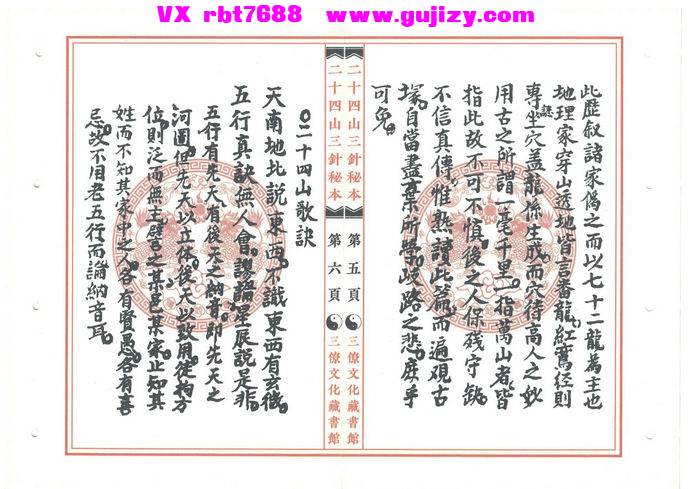 VX rbt7688 www.gujizy.com
此歷叙諸家偽之而以七十二龍為主也
地理家穿山透地皆言番龍紅鸞經則
專坐穴盖龍係生成而穴得高人之妙
用古之所謂一毫千里一指萬山者皆
指此故不可不慎後之人保殘守缺
不信真傳惟熟讀此篇而遍覌古
塚自當盡棄所學歧路之悲庶乎
可免
二十四山三針秘本
第五頁
三僚文化藏書館
二十四山三針秘本
第六頁
三僚文化藏書館
〇二十四山歌訣
天南地北說東西不識東西有玄微
五行真訣無人會謬論星辰說是非
五行有先天有後天之納音即先天之
河圖但先天以立体後天以致用徒拘方
位則泛而無主譬之某邑某家止知其
姓而不知其家中之人各有賢愚各有喜
忌故不用老五行而論納音耳